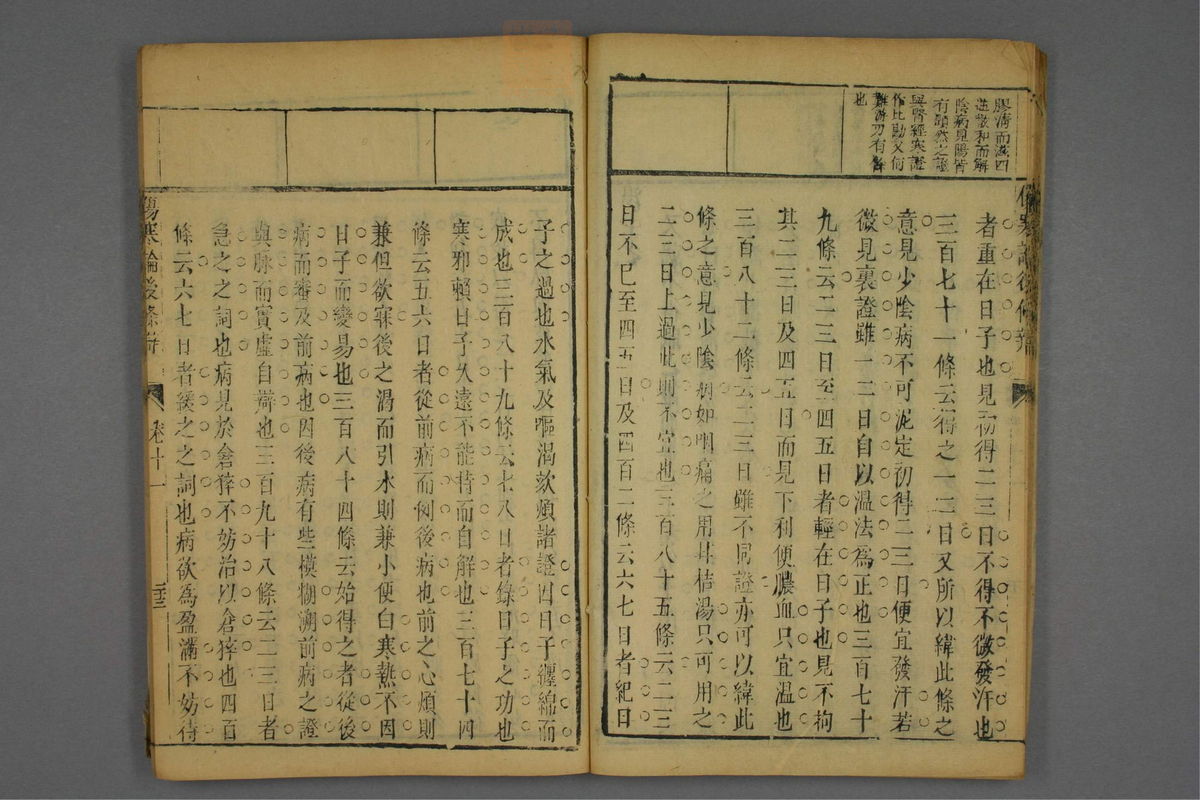 膠清而滋四
逆散和而解
陰病見陽皆
有顯然之證
與醫經寒證
作比勘又何
難游刃有餘
也
者重在日子也見初得二三日不得不微發汗也
三百七十一條云得之一二日又所以緯此條之
意見少陰病不可泥定初得二三日便宜發汗若
微見裏證雖一二日自以温法為正也三百七十
九條云二三日至四五日者輕在日子也見不拘
其二三日及四五日而見下利便膿血只宜温也
三百八十二條云二三日雖不同證亦可以緯此
條之意見少陰病如咽痛之用甘桔湯只可用之
二三日上過此則不宜也三百八十五條云二三
日不已至四五日及四百二條云六七日者紀日
子之過也水氣及嘔渴欬煩諸證因日子纏綿而
成也三百八十九條云七八日者錄日子之功也
寒邪賴日子久遠不能持而自解也三百七十四
條云五六日者從前病而例後病也前之心煩則
兼但欲寐後之渴而引水則兼小便白寒熱不因
日子而變易也三百八十四條云始得之者從後
病而審及前病也因後病有些模糊溯前病之證
與脉而實虛自辯也三百九十八條云二三日者
急之之詞也病見於倉猝不妨治以倉猝也四百
條云六七日者緩之之詞也病欲為盈滿不妨待
傷寒論後條辨
卷十一
三十三